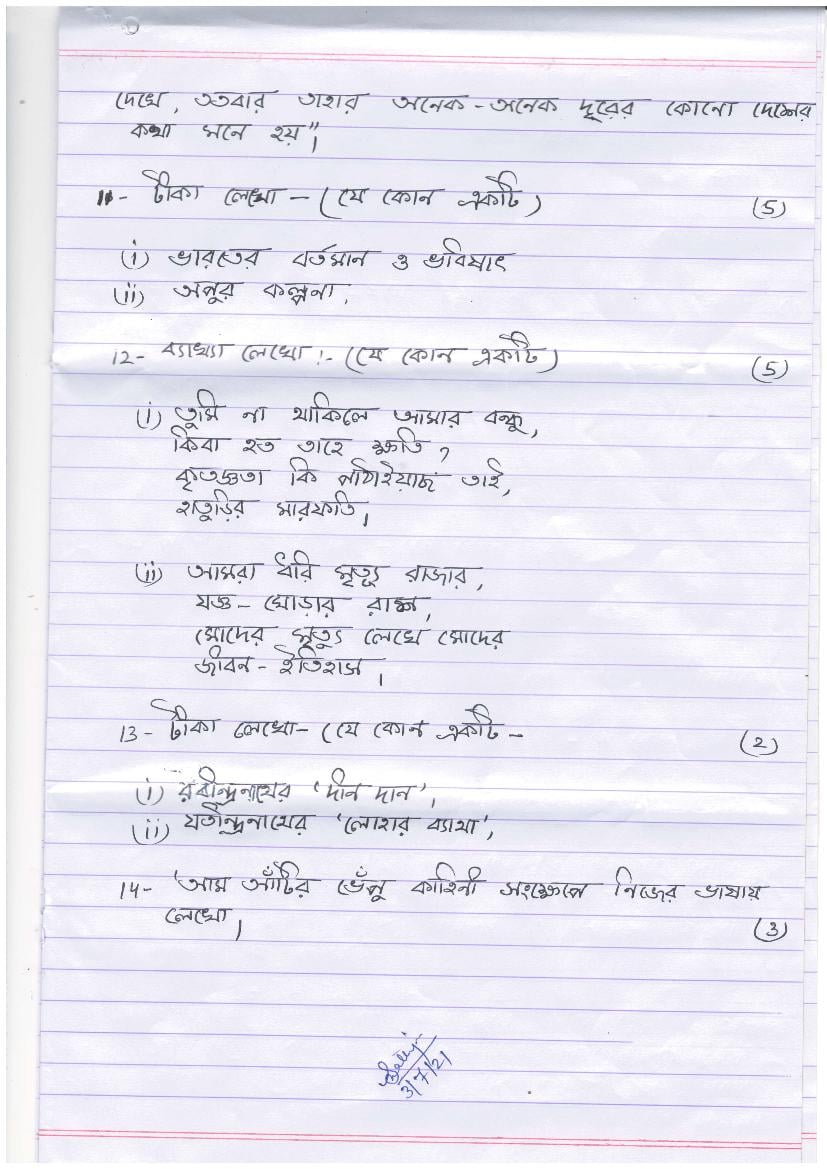 দেখে, ততবার তাহার অনেক - অনেক দূরের কোনো দেশের
কথা মনে হয়"।
11- টীকা লেখো - (যে কোন একটি) (5)
(i) ভারতের বর্তমান ও ভবিষ্যৎ
(ii) অপুর কল্পনা,
12- ব্যাখ্যা লেখো :- (যে কোন একটি) (5)
(i) তুমি না থাকিলে আমার বন্ধু,
কিবা হত তাহে ক্ষতি ?
কৃতজ্ঞতা কি পাঠাইয়াছ তাই,
হাতুড়ির মারফতি।
(ii) আমরা ধরি মৃত্যু রাজার,
যজ্ঞ - ঘোড়ার রাশ,
মোদের মৃত্যু লেখে মোদের
জীবন - ইতিহাস।
13 - টীকা লেখো - (যে কোন একটি - (2)
(i) রবীন্দ্রনাথের 'দীন দান',
(ii) যতীন্দ্রনাথের 'লোহার ব্যাথা',
14- 'আম আঁটির ভেঁপু কাহিনী সংক্ষেপে নিজের ভাষায়
লেখো। (3)
3/7/21